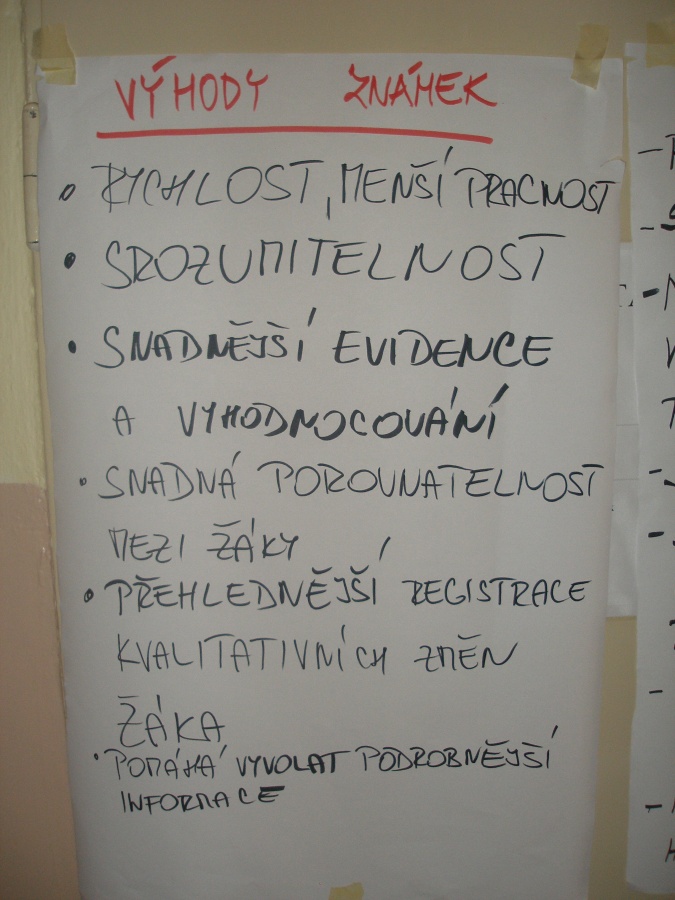 VÝHODY ZNÁMEK
• RYCHLOST, MENŠÍ PRACNOST
• SROZUMITELNOST
• SNADNĚJŠÍ EVIDENCE
A VYHODNOCOVÁNÍ
• SNADNÁ POROVNATELNOST
MEZI ŽÁKY
• PŘEHLEDNĚJŠÍ REGISTRACE
KVALITATIVNÍCH ZMĚN
ŽÁKA
• POMÁHÁ VYVOLAT PODROBNĚJŠÍ
INFORMACE